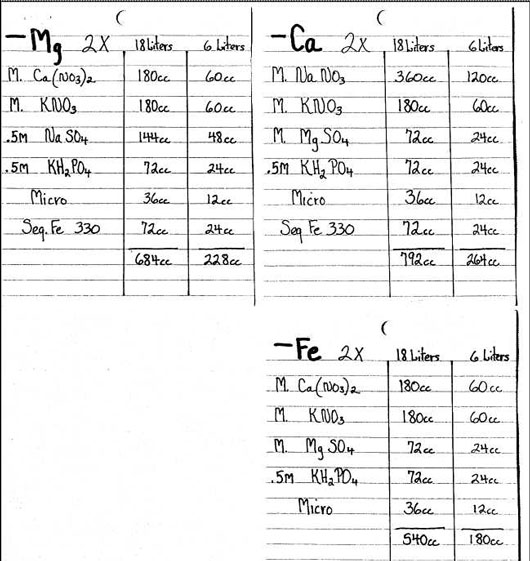 -Mg 2X 18 Liters 6 Liters
M. Ca(NO3)2 180cc 60cc
M. KNO3 180cc 60cc
.5M NaSO4 144cc 48cc
.5M KH2PO4 72cc 24cc
Micro 36cc 12cc
Seq. Fe 330 72cc 24cc
684cc 228cc
-Ca 2X 18 Liters 6 Liters
M. NaNO3 360cc 120cc
M. KNO3 180cc 60cc
M. MgSO4 72cc 24cc
.5M KH2PO4 72cc 24cc
Micro 36cc 12cc
Seq Fe 330 72cc 24cc
792cc 264cc
-Fe 2X 18 Liters 6 Liters
M. Ca(NO3)2 180cc 60cc
M. KNO3 180cc 60cc
M. MgSO4 72cc 24cc
.5M KH2PO4 72cc 24cc
Micro 36cc 12cc
540cc 180cc